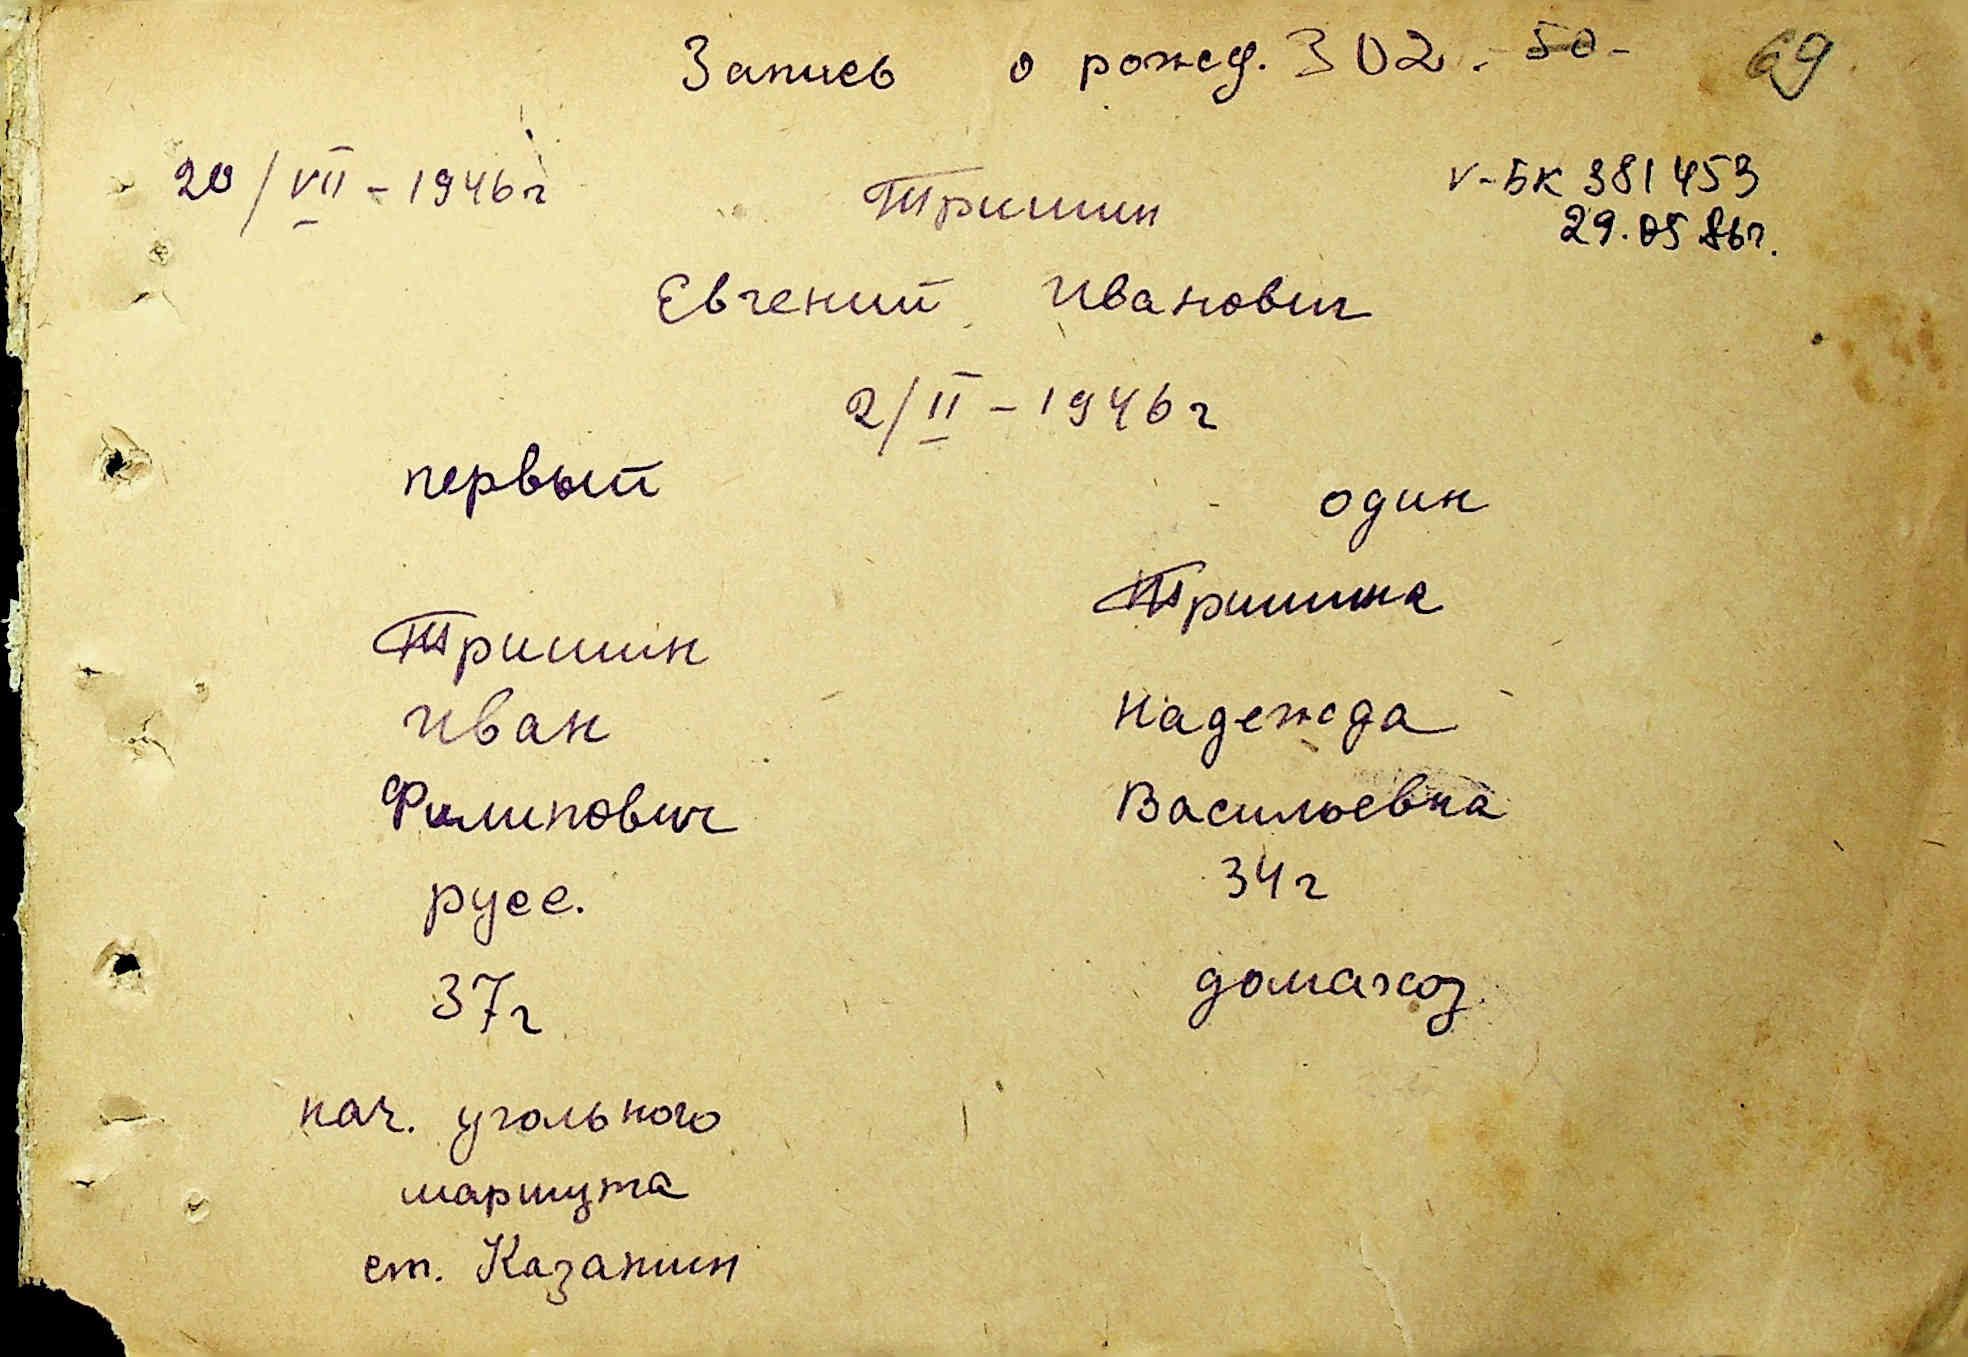 Запись о рожд. 302. -50- 69
20/VII-1946г Тришин V-БК 381453
29.05 86г.
Евгений Иванович
2/II-1946г
первый один
Тришина
Тришин
Иван Надежда
Филипович Васильевна
русс. 34г
37г домахоз.
нач. угольного
маршута
ст. Казатин